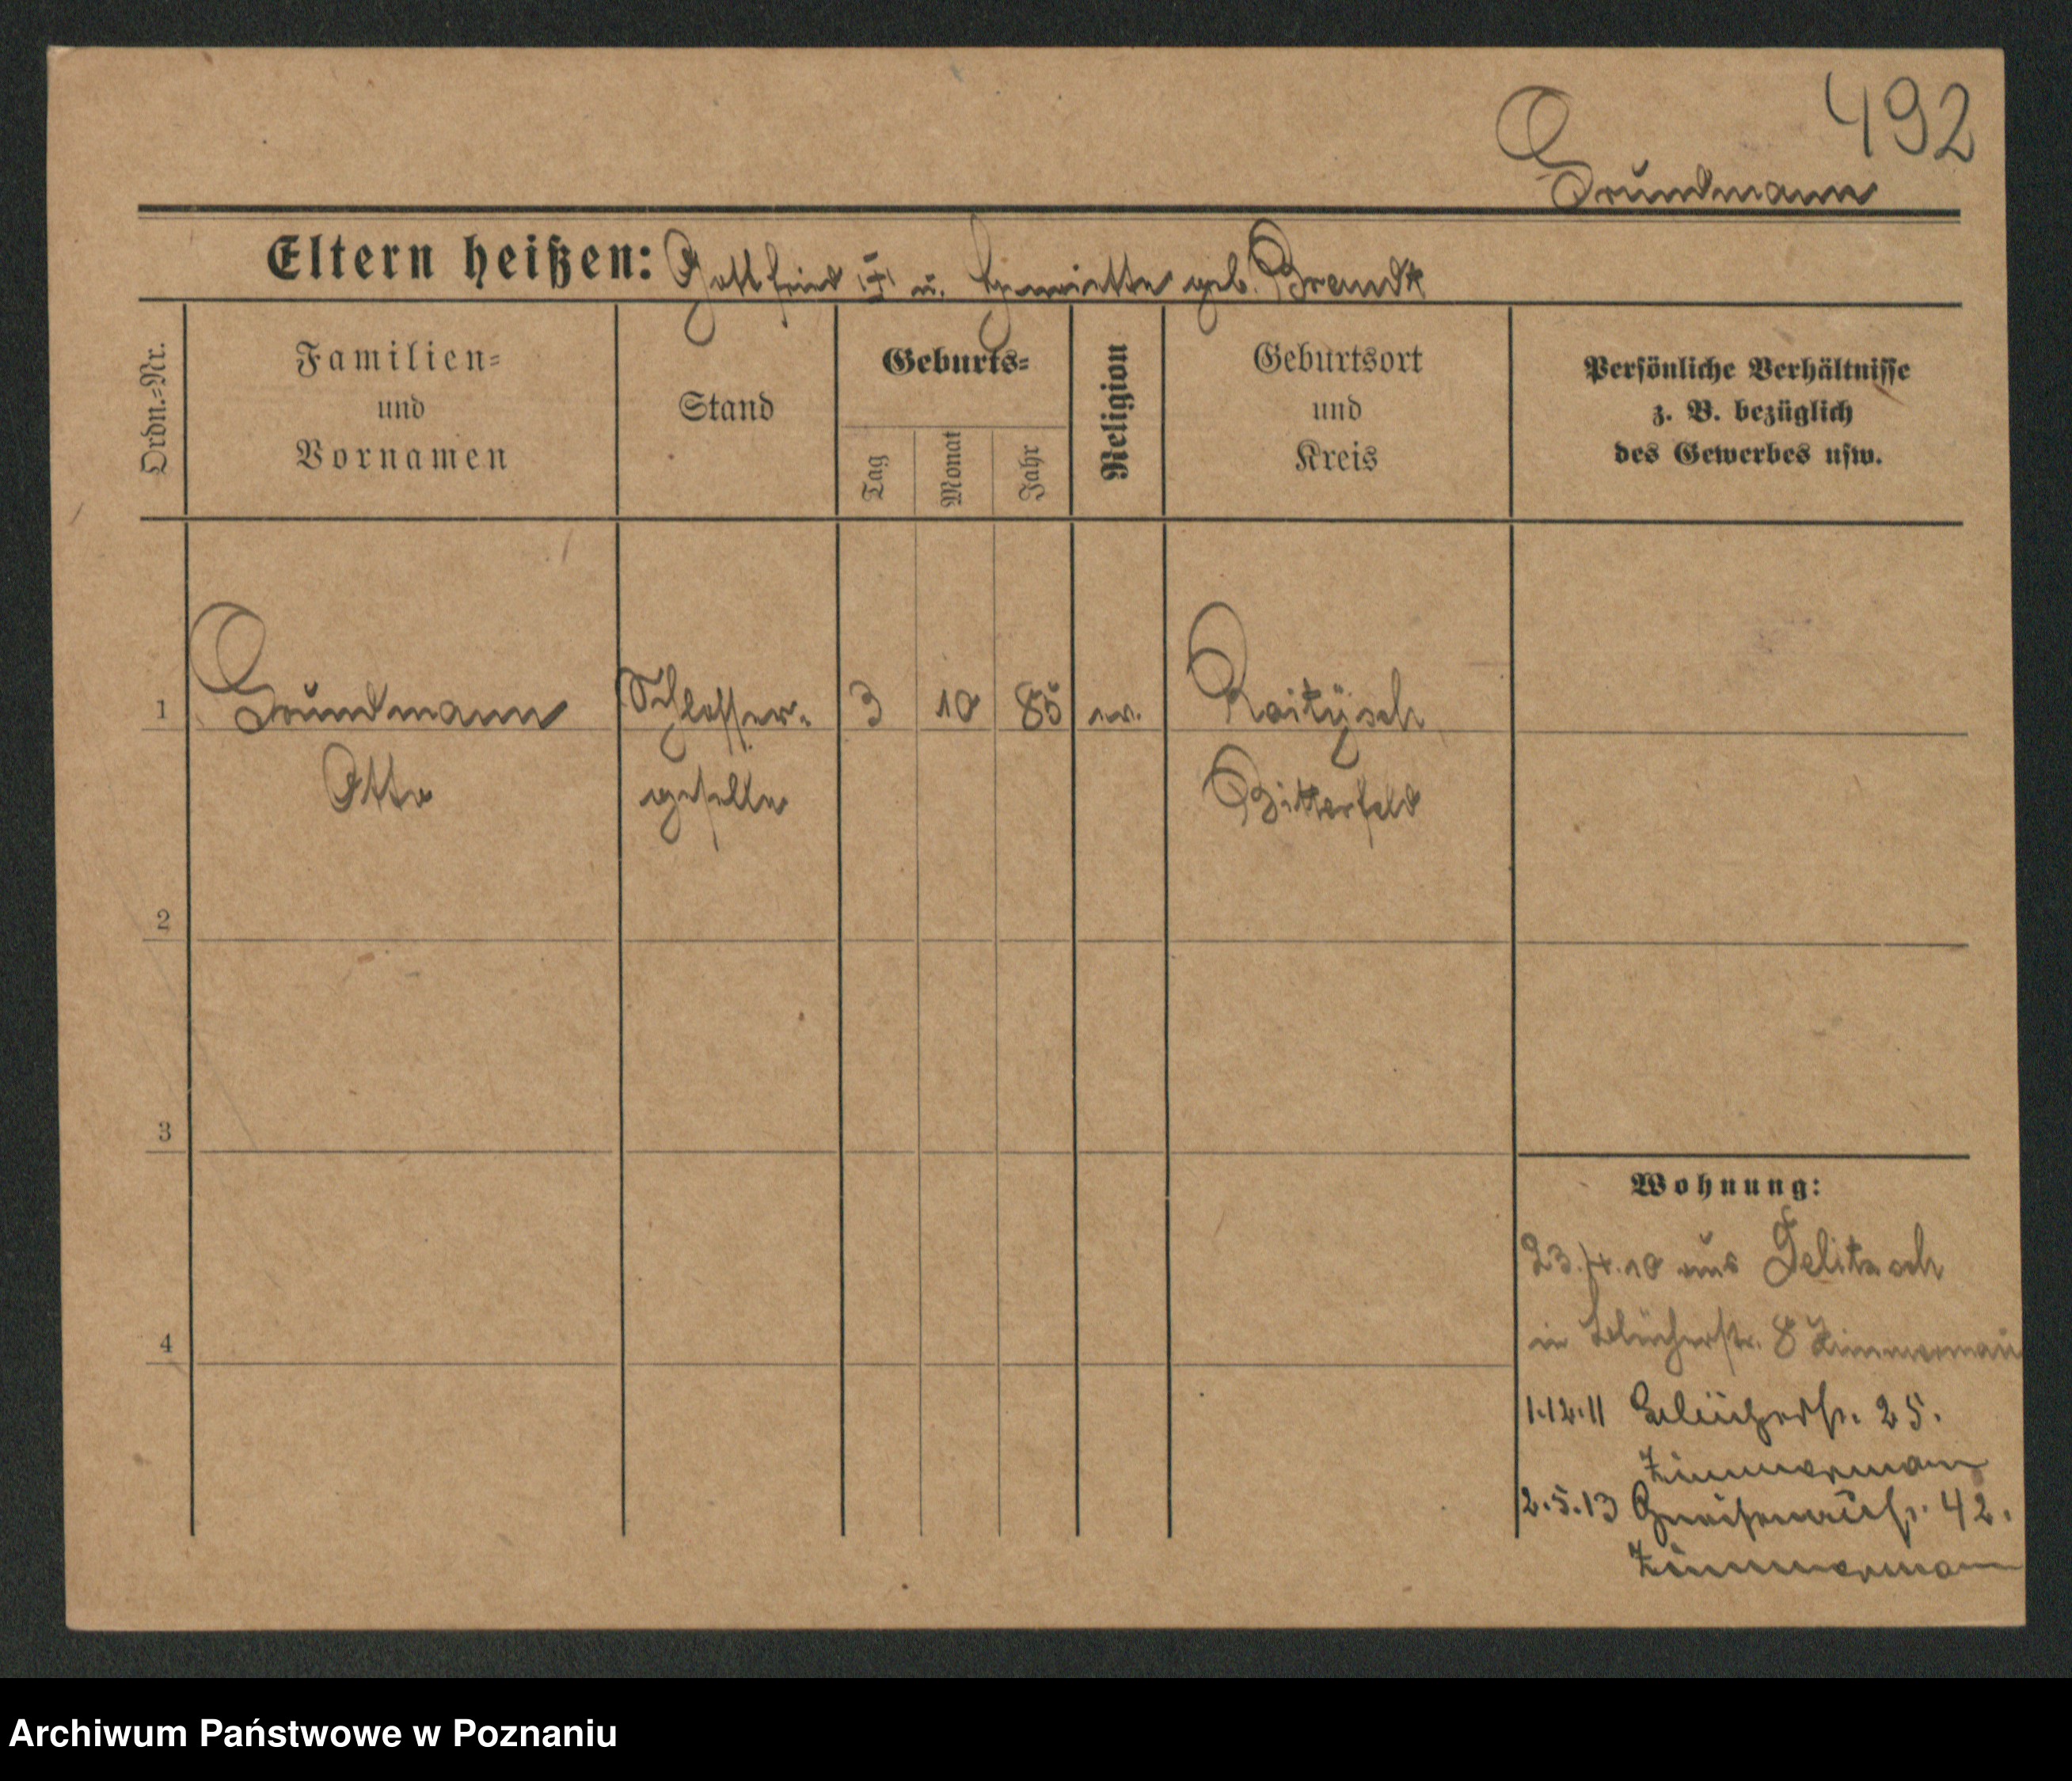 492
Grundmann
Eltern heißen: Gottfried u. Henriette geb. Brandt
Ordn.-Nr.
Familien-
und
Vornamen
Stand
Geburts-
Tag
Monat
Jahr
Religion
Geburtsort
und
Kreis
Persönliche Verhältnisse
z. B. bezüglich
des Gewerbes usw.
1 Grundmann Schlosser- 3 10 85 ev. Roitzsch
Otto geselle Bitterfeld
2
3
4
Wohnung:
23.4.10 aus Delitzsch
in Blücherstr. 8 Zimmermann
1.12.11 Blücherstr. 25.
Zimmermann
2.5.13 Gneisenaustr. 42.
Zimmermann
Archiwum Państwowe w Poznaniu